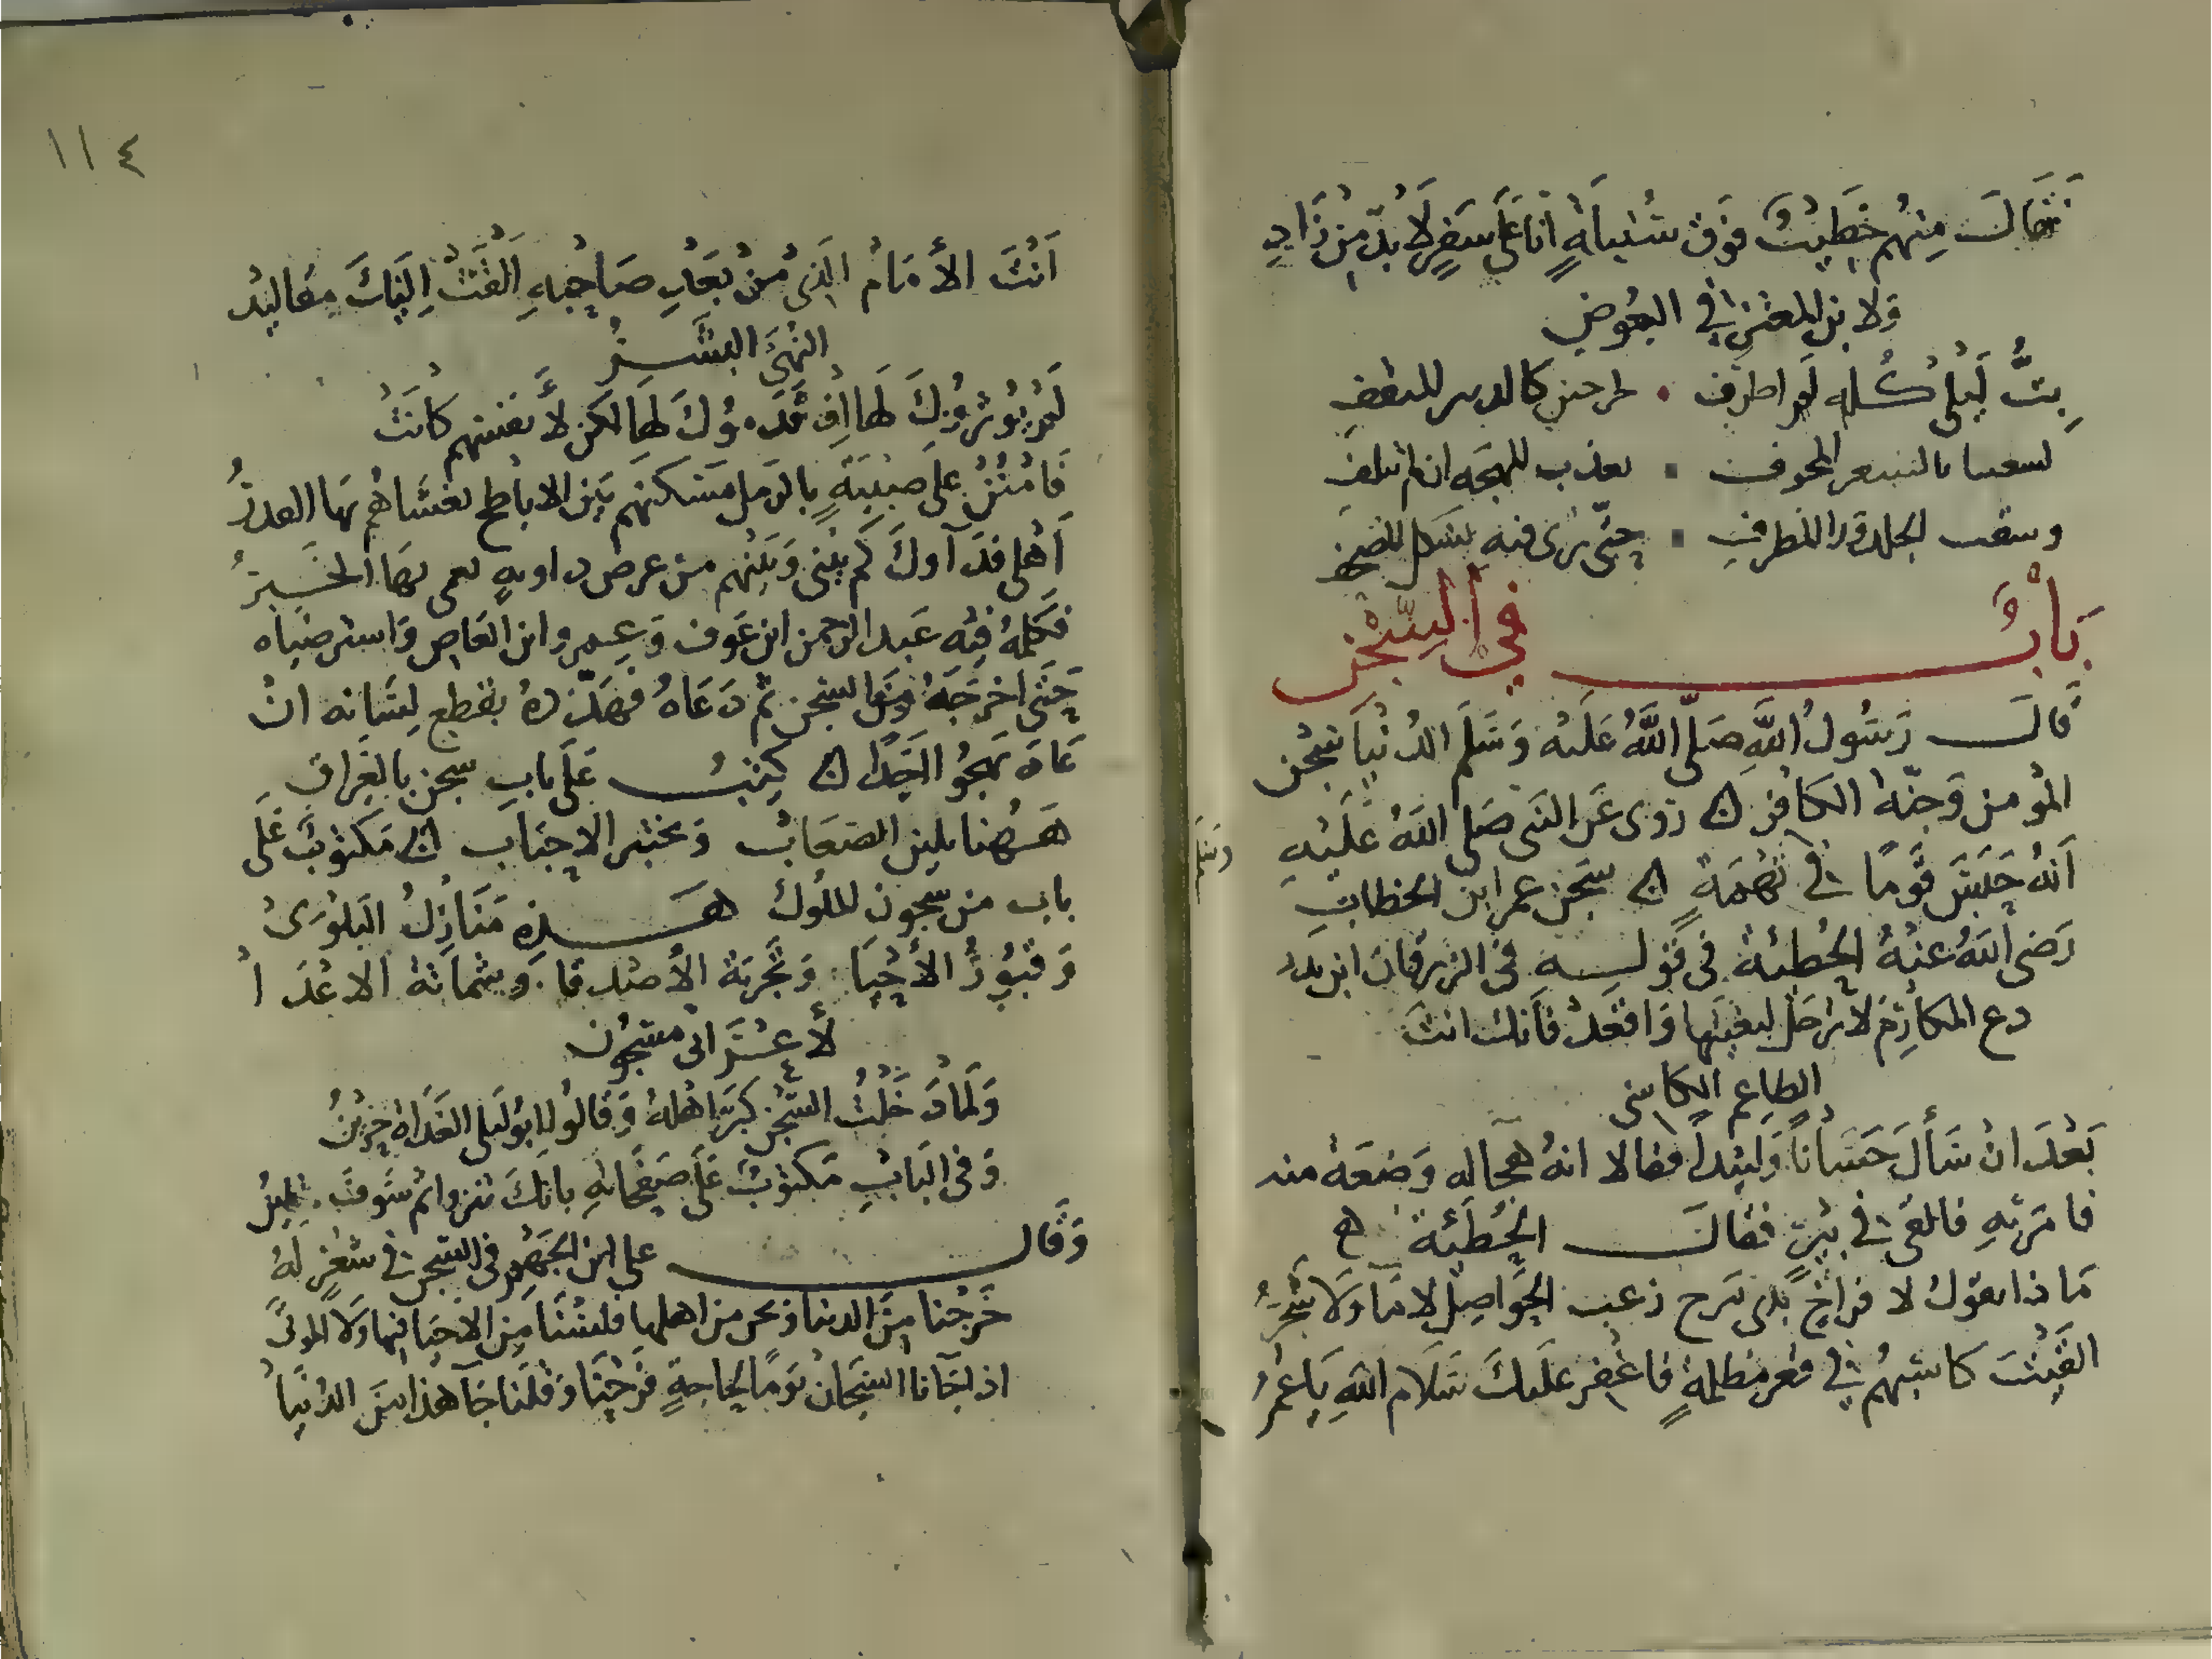 فقال منهم خطيبٌ فوق سُنبلةٍ انا على سفرٍ لا بدّ من زادِ
ولابن المعتز في البعوض
بتُّ ليلى كله لم اطرف
لسعها بالشعر للمهجه ان لم تتلف
الجلد ورا المطرف حتّى ترى فيه بشكل
بَابٌ في السجن
قَالَ رَسُولُ اللَّهِ صَلَّى اللَّهُ عَلَيْهِ وَسَلَّم الدُنيَا سِجْن
المؤمن وَجنّة الكافر روى عَن النبى صَلى اللهُ عَليْهِ
وسَلم
اَنهُ حَبَسَ قَومًا في تهمَةٍ سَجن عمر ابن الخطاب
رَضى اللهُ عنهُ الحُطيئة فى قَولهِ فى الزبرقان ابن بدر
دع المكارِمَ لا ترحَل لبغيتها وَاقعُد فَانك انتَ
الطاعم الكاسى
بَعْدَ ان سَأل حَسَّانًا وَلبيداً فقالا انهُ هجاله وَضعَة منه
فامرَ بِهِ فالقى في بئرٍ فقالَ الحُطيئة
مَاذا تقول لافراخ بذى مرخ زغب الحَواصِل لا مَآ وَلا شجَرُ
القَيْتَ كاسبهُم في قعر مظلمةٍ فاغفِر علَيكَ سَلام اللهِ يَا عُمَرُ
١١٤
اَنْتَ الأمَامُ الذى مِنْ بَعْدِ صَاحِبهِ اَلْقَتْ اِليْكَ مقاليد
النُهَى البَشَرُ
لَمْ يُوثرُوكَ لهَا اِذ قَدَموُكَ لهَا لكن لأَنفسهم كانَتْ
فَامنُنْ علَى صبيَةٍ بالرمل مَسْكنهم بَيْن الاباطح تغشاهُم بهَا
اَهْلى فدآوكَ كم بَيْنى وَبَيْنهم من عرض داويهٍ تعمى بهَا الخَبرُ
فكلمهُ فيْه عَبد الرحمن ابن عَوف وَعمرو ابن العَاص وَاسترضياه
حَتَى اخرجَهُ مِنَ السجن ثم دَعَاهُ فهَدّدهُ بقطع لِسَانه ان
عَادَ يهجُو احَدًا كتبُ عَلى بابِ سجن بالعراق
هَهُنا تلين الصّعَابُ وَتختبر الاحبَاب مَكتوبٌ عَلى
باب من سجون الملوك هَذِهِ مَنَازِلُ البَلوَى
وَقبُورُ الأحْيَا وَتجربَة الأصْدقا وَشماتة الاعْدَا
لأعْرَابى مسجُون
وَلَمّا دَخَلتُ السّجن كبّر اهْلهُ وَقالُوا ابُو ليلى الغَدَاة حَزينُ
وَفى البَابِ مكتوبٌ عَلى صَفحَاتهِ بانكَ تنزوا ثم سَوفَ تلينُ
وَقَال على ابن الجَهم فى السّجن في شعْرٍ لَهُ
خَرجْنا مِنَ الدنيا وَنحن من اهلها فلسْنَا مِن الاحيَا فيها وَلا الموتى
اذا جَآنا السّجَان يَومًا لحاجةٍ فَرحنَا وَقلنا جَآ هذا مِن الدُنيَا